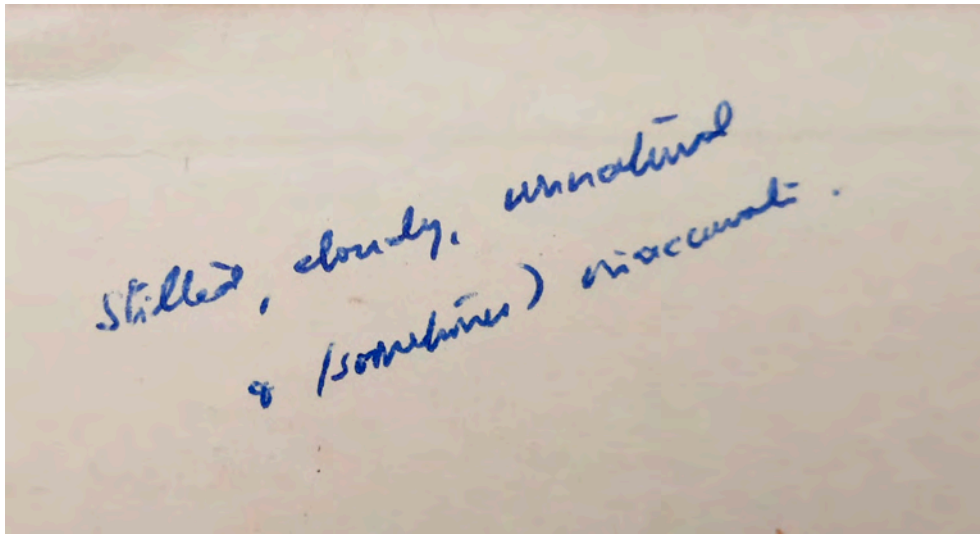 Stilted, cloudy, unnatural
& (sometimes) inaccurate.